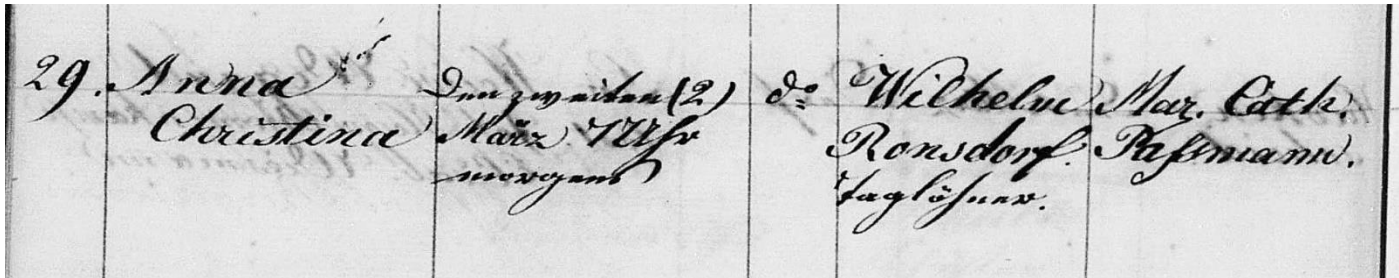 29. Anna
Christina
den zweiten (2)
März 7 Uhr
morgens
do
Wilhelm
Ronsdorf.
Taglöhner.
Mar. Cath.
Paßmann.